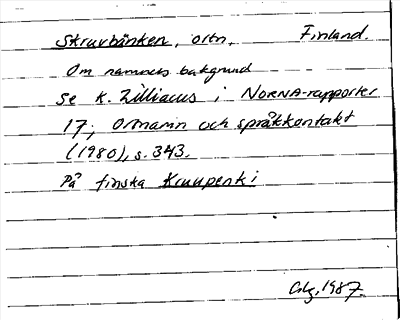 Skruvbänken, ortn. Finland.
Om namnets bakgrund
se K. Zilliacus i NORNA-rapporter
17; Ortnamn och språkkontakt
(1980), s. 343.
På finska Kruupenki
1987.